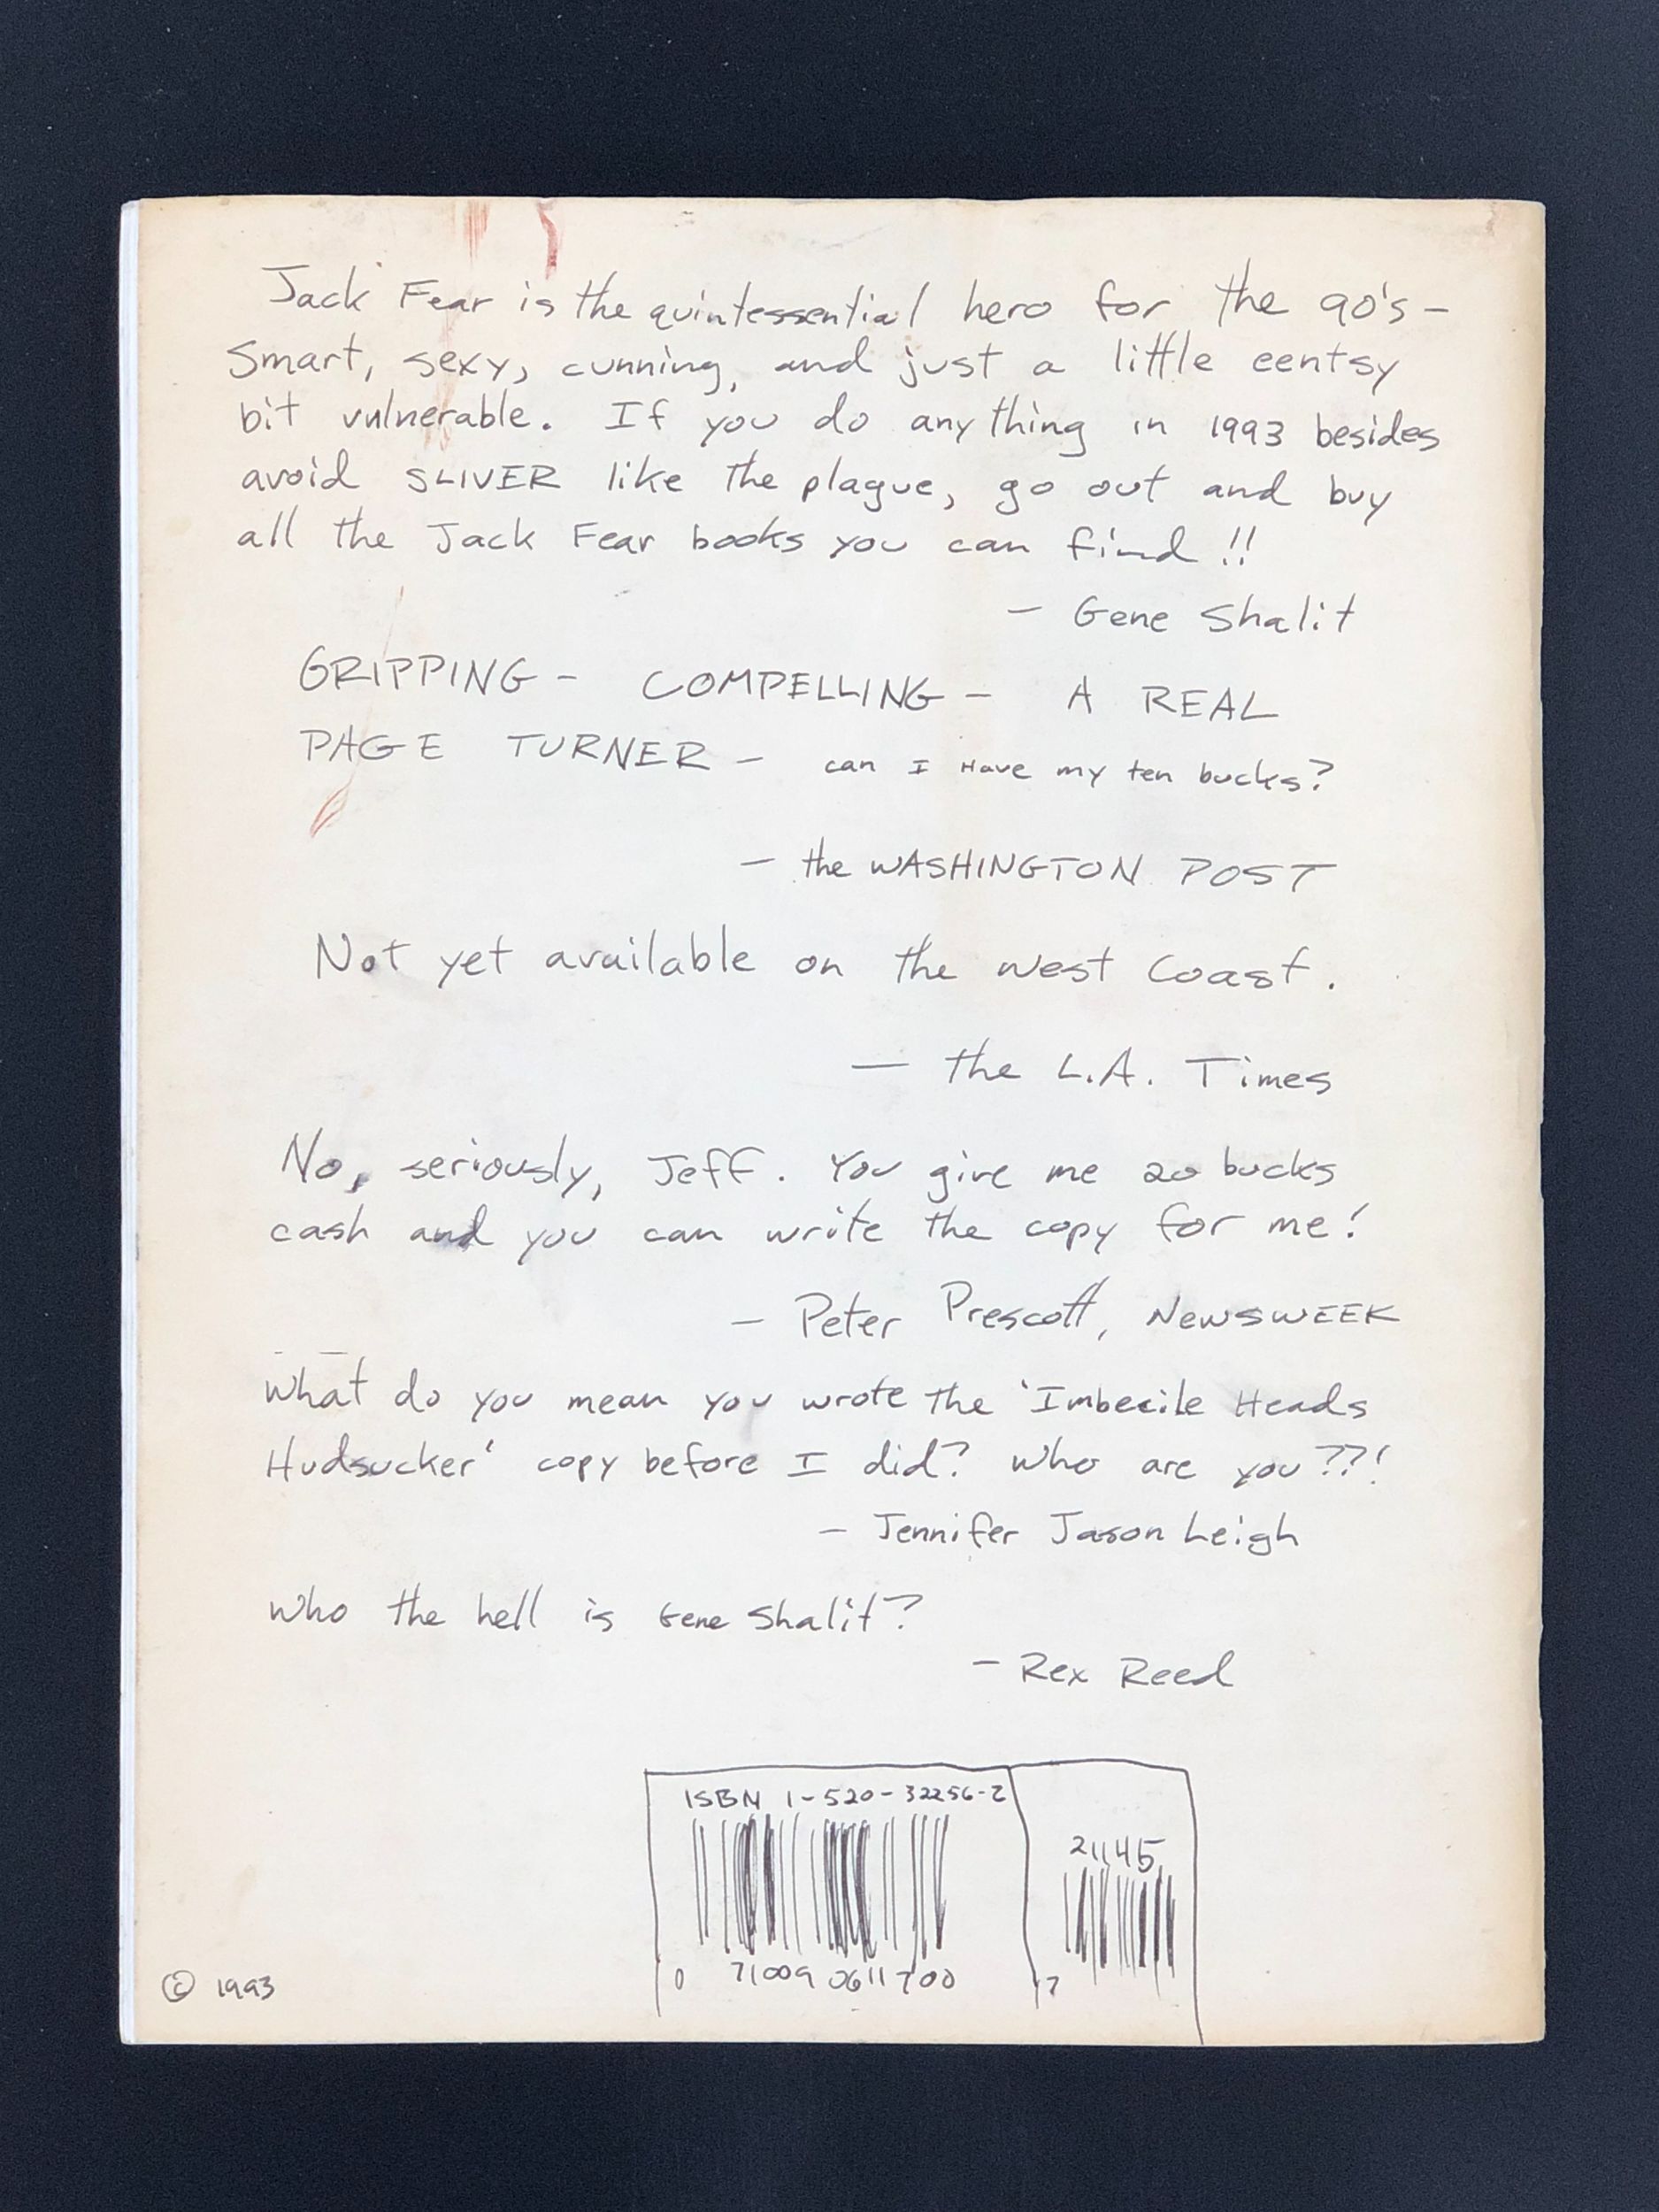 Jack Fear is the quintessential hero for the 90's -
Smart, sexy, cunning, and just a little eentsy
bit vulnerable. If you do anything in 1993 besides
avoid SLIVER like the plague, go out and buy
all the Jack Fear books you can find!!
- Gene Shalit
GRIPPING - COMPELLING - A REAL
PAGE TURNER - can I Have my ten bucks?
- the WASHINGTON POST
Not yet available on the west Coast.
- the L.A. Times
No, seriously, Jeff. You give me 20 bucks
cash and you can write the copy for me!
- Peter Prescott, NewsWEEK
What do you mean you wrote the 'Imbecile Heads
Hudsucker' copy before I did? Who are you??!
- Jennifer Jason Leigh
Who the hell is Gene Shalit?
- Rex Reed
ISBN 1-520-32256-2
21145
0 71009 0611700 7
© 1993